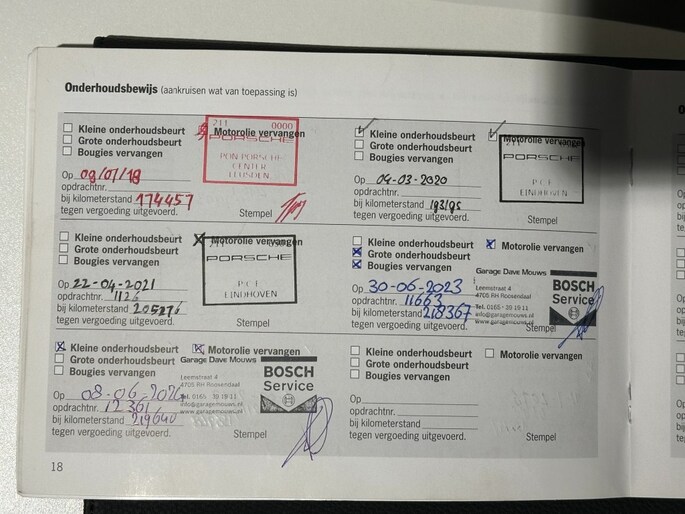 Onderhoudsbewijs (aankruisen wat van toepassing is)
Kleine onderhoudsbeurt
Motorolie vervangen
Grote onderhoudsbeurt
Bougies vervangen
211 0000
PORSCHE
PON PORSCHE
CENTER
LEUSDEN
Op 09/07/18
opdrachtnr.
bij kilometerstand 174457
tegen vergoeding uitgevoerd.
Stempel
Kleine onderhoudsbeurt
Motorolie vervangen
Grote onderhoudsbeurt
Bougies vervangen
PORSCHE
EINDHOVEN
Op 04-03-2020
opdrachtnr.
bij kilometerstand
tegen vergoeding uitgevoerd.
Stempel
Kleine onderhoudsbeurt
Motorolie vervangen
Grote onderhoudsbeurt
Bougies vervangen
PORSCHE
EINDHOVEN
Op 22-04-2021
opdrachtnr. 1126
bij kilometerstand 205276
tegen vergoeding uitgevoerd.
Stempel
Kleine onderhoudsbeurt
Motorolie vervangen
Grote onderhoudsbeurt
Bougies vervangen
Garage Dave Mouws
Leemstraat 4
4705 RH Roosendaal
Tel. 0165 - 39 19 11
info@garagemouws.nl
www.garagemouws.nl
BOSCH
Service
Op 30-06-2023
opdrachtnr. 11663
bij kilometerstand 218367
tegen vergoeding uitgevoerd.
Stempel
Kleine onderhoudsbeurt
Motorolie vervangen
Grote onderhoudsbeurt
Bougies vervangen
Garage Dave Mouws
Leemstraat 4
4705 RH Roosendaal
Tel. 0165 - 39 19 11
info@garagemouws.nl
www.garagemouws.nl
BOSCH
Service
Op
opdrachtnr. 12361
bij kilometerstand 219640
tegen vergoeding uitgevoerd.
Stempel
Kleine onderhoudsbeurt
Motorolie vervangen
Grote onderhoudsbeurt
Bougies vervangen
Op
opdrachtnr.
bij kilometerstand
tegen vergoeding uitgevoerd.
Stempel
18